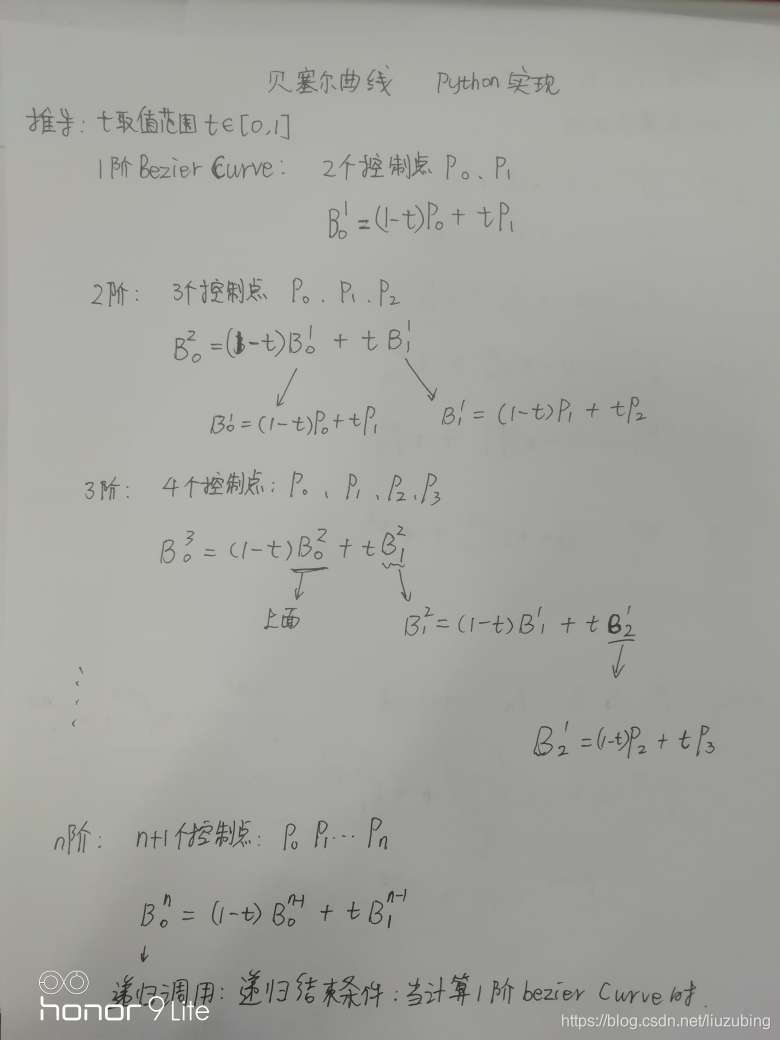 贝塞尔曲线 Python实现
推导: t取值范围 t∈[0,1]
1阶Bezier Curve: 2个控制点 P₀、P₁
B₀¹=(1-t)P₀+tP₁
2阶: 3个控制点 P₀、P₁、P₂
B₀²=(1-t)B₀¹+tB₁¹
B₀¹=(1-t)P₀+tP₁ B₁¹=(1-t)P₁+tP₂
3阶: 4个控制点: P₀、P₁、P₂、P₃
B₀³=(1-t)B₀²+tB₁²
上面
B₁²=(1-t)B₁¹+tB₂¹
B₂¹=(1-t)P₂+tP₃
n阶: n+1个控制点: P₀ P₁⋯Pₙ
B₀ⁿ=(1-t)B₀ⁿ⁻¹+tB₁ⁿ⁻¹
递归调用: 递归结束条件: 当计算1阶bezier Curve时.
honor 9Lite
https://blog.csdn.net/liuzubing